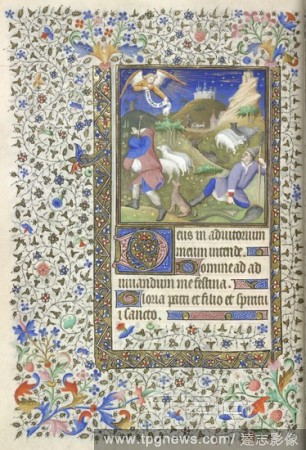 Deus in adiutorium
meum intende.
Domine ad ad
iuuandum me festina.
Gloria patri et filio et spiritu
i sancto.
www.tpgnews.com/ 達志影像